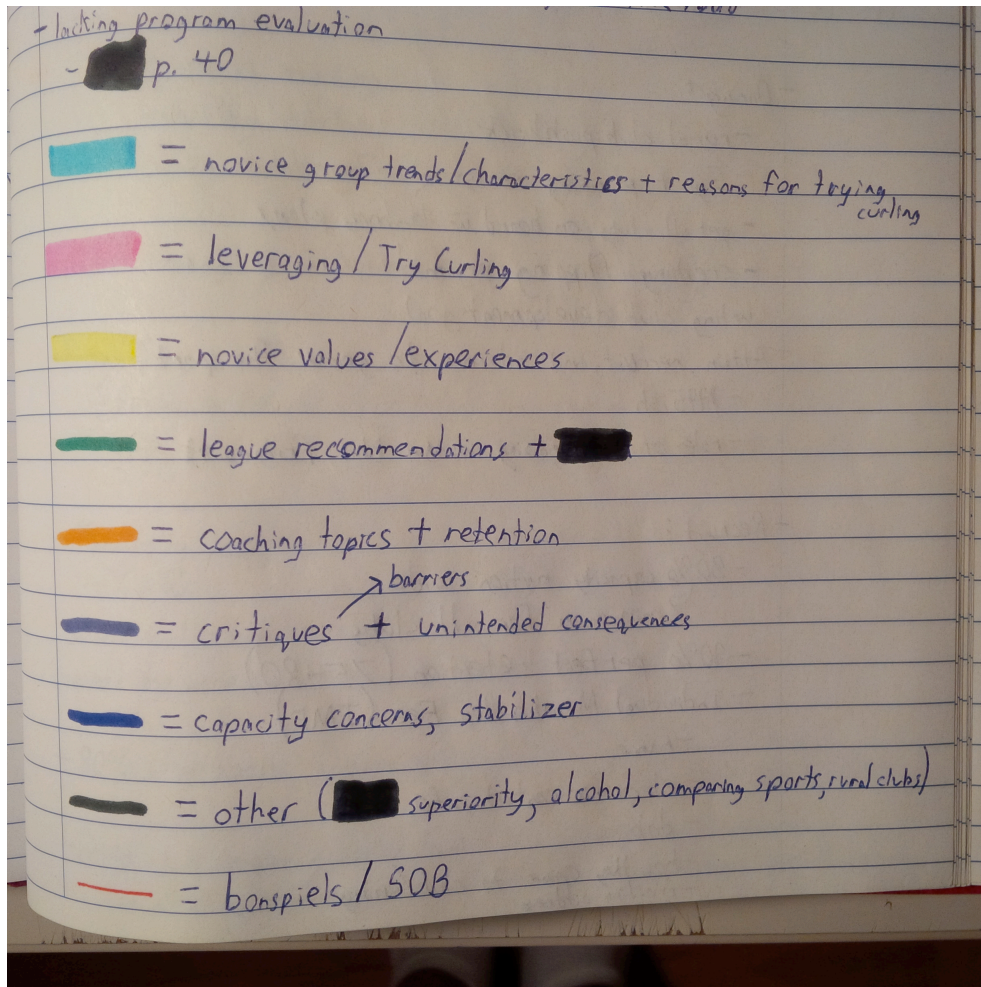 - lacking program evaluation
- p. 40
= novice group trends/characteristics + reasons for trying
curling
= leveraging / Try Curling
= novice values /experiences
= league recommendations +
= coaching topics + retention
barriers
= critiques + unintended consequences
= capacity concerns, stabilizer
= other ( superiority, alcohol, comparing sports, rural clubs)
= bonspiels / SOB